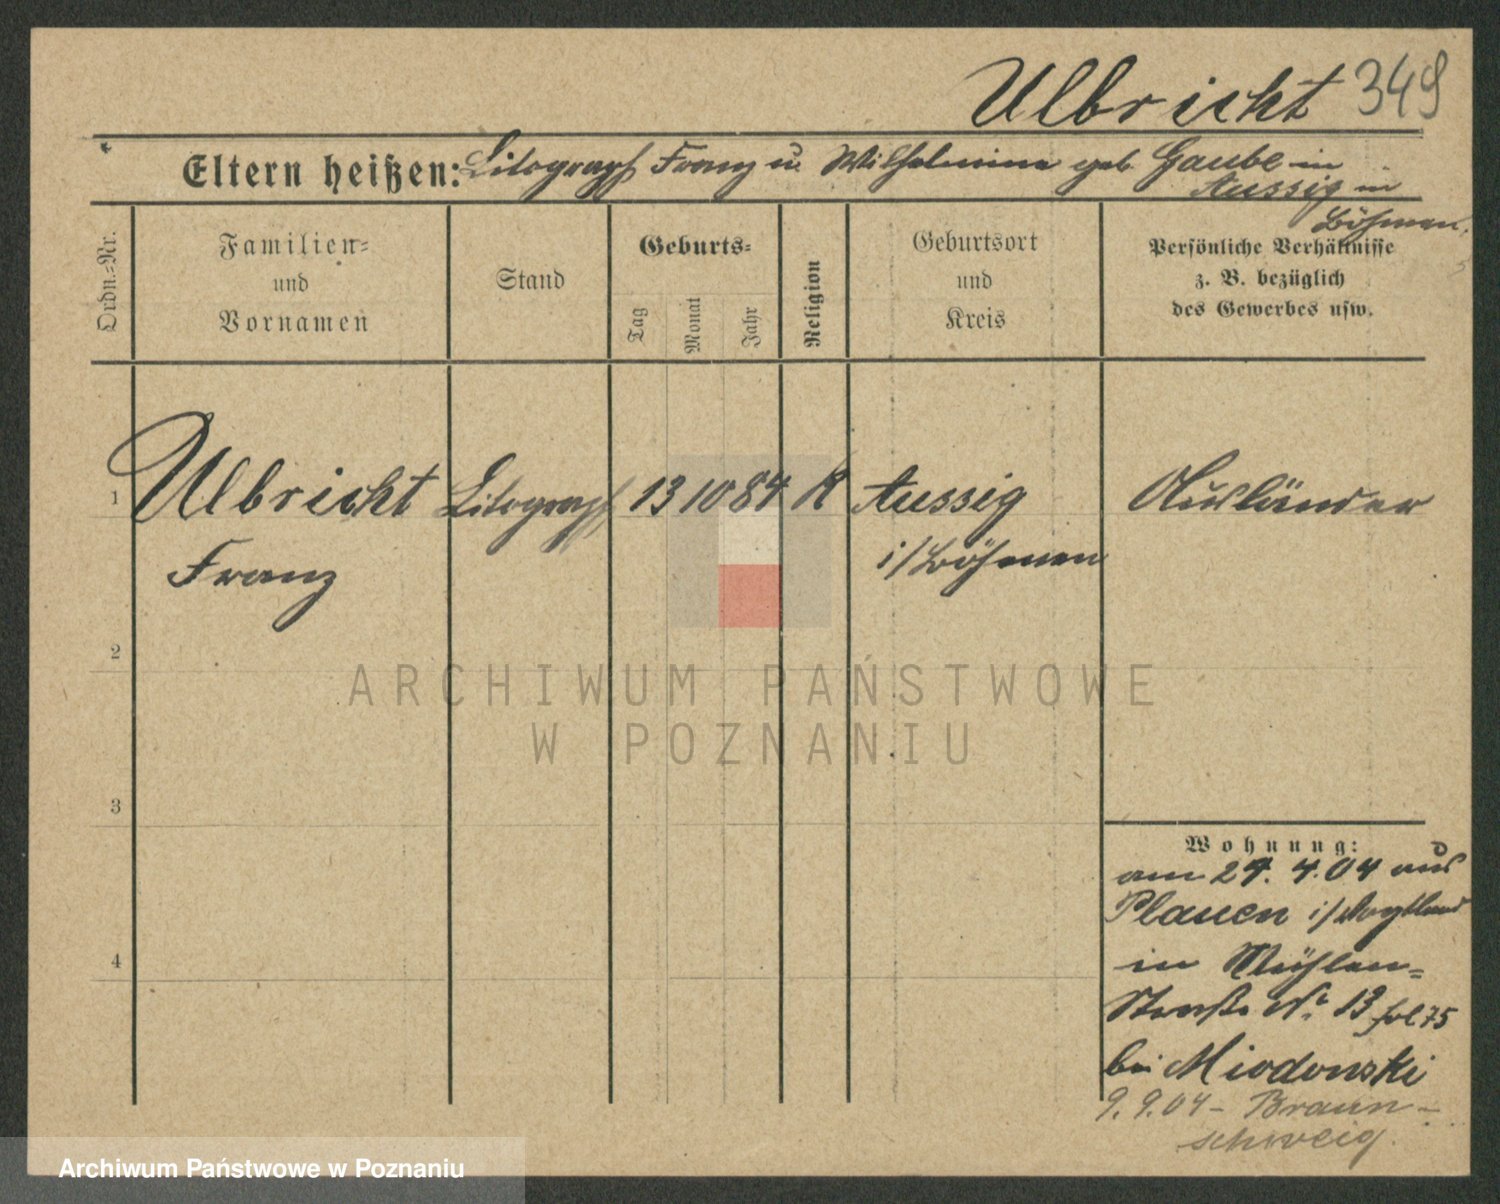 Ulbricht 349
Eltern heißen: Litograph Franz u. Wilhelmine geb. Gaube in
Aussig in
Böhmen.
Ordn.-Nr.
Familien-
und
Vornamen
Stand
Geburts-
Tag
Monat
Jahr
Religion
Geburtsort
und
Kreis
Persönliche Verhältnisse
z. B. bezüglich
des Gewerbes usw.
1 Ulbricht Litograph 13 10 84 K Aussig Ausländer
Franz i/Böhmen
2
ARCHIWUM PAŃSTWOWE
W POZNANIU
3
Wohnung:
am 24. 4. 04 aus
Plauen i/Vogtland
4 in Mühlen-
Straße Nr. 13 fol 75
bei Miodonski
9. 9. 04 - Braun-
schweig.
Archiwum Państwowe w Poznaniu